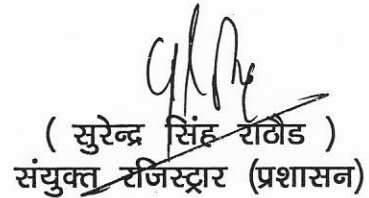 ( सुरेन्द्र सिंह राठौड )
संयुक्त रजिस्ट्रार (प्रशासन)